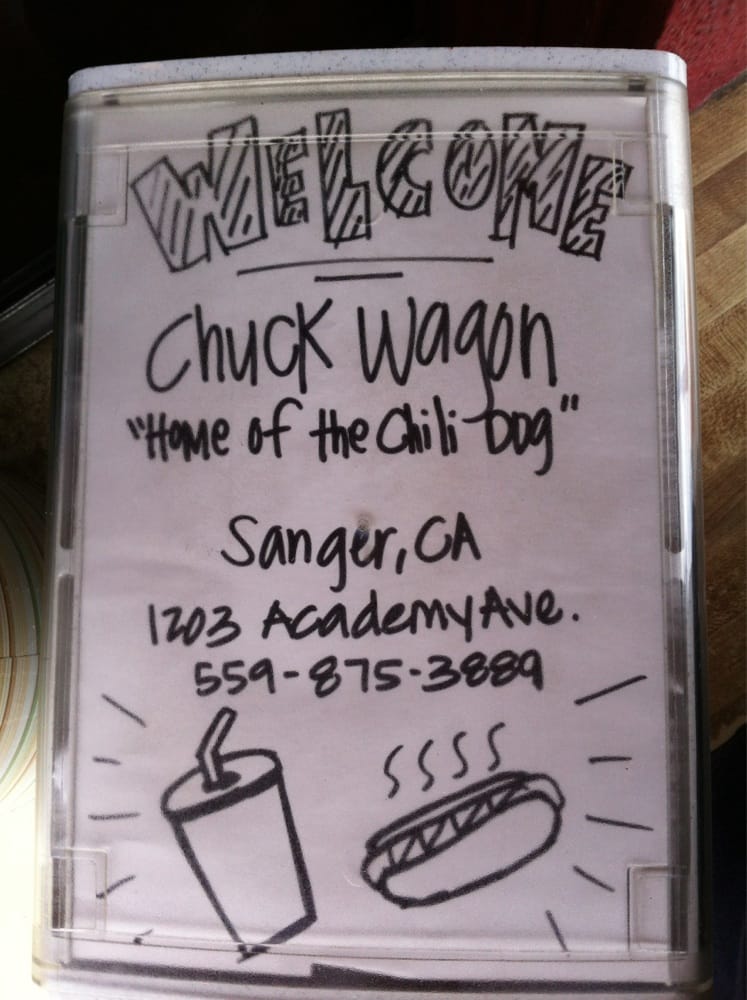 WELCOME
Chuck Wagon
"Home of the Chili Dog"
Sanger, CA
1203 Academy Ave.
559-875-3889